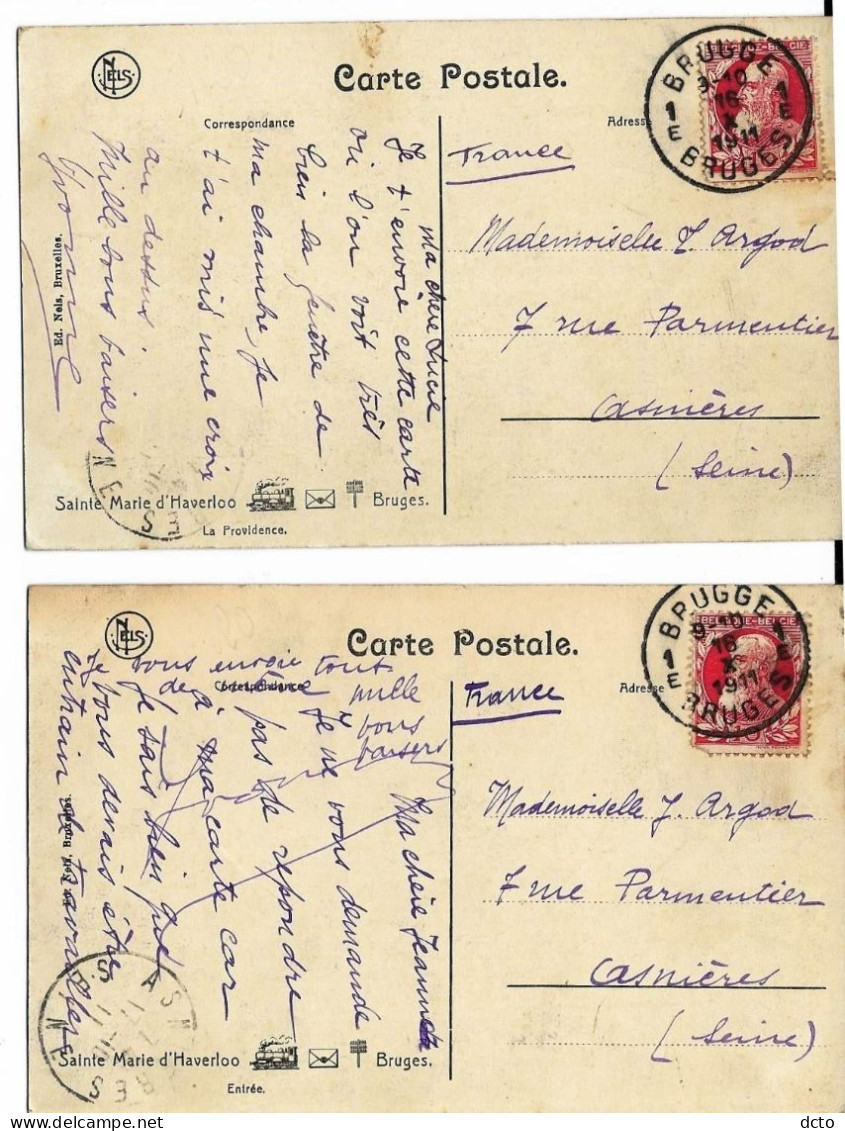 NELS
Carte Postale.
Correspondance
Adresse
BELGIQUE-BELGIE
BRUGGE
9-10
16
X
1911
1E
1E
BRUGES
France
Mademoiselle L. Argod
7 rue Parmentier
Asnières
(Seine)
Ma chère Lucie
Je t'envoie cette carte
où l'on voit très
bien la fenêtre de
ma chambre, je
t'ai mis une croix
au dessus.
Mille bons baisers
Yvonne
Ed. Nels, Bruxelles.
Sainte Marie d'Haverloo
Bruges.
La Providence.
NELS
Carte Postale.
Correspondance
Adresse
BELGIQUE-BELGIE
BRUGGE
9-10
16
X
1911
1E
1E
BRUGES
France
Mademoiselle J. Argod
7 rue Parmentier
Asnières
(Seine)
Ma chère Jeannette
Je ne vous demande
pas de repondre
à ma carte car
Je sais bien que
vous devais être
entrain de travailler
Je vous envoie tout
de
mille
bons
baisers
Ed. Nels, Bruxelles.
Sainte Marie d'Haverloo
Bruges.
Entrée.
ASNIERES
dcto